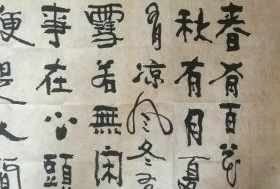 春有百花
秋有月夏
有凉风冬有
雪若無闲
事在心頭
便是人間